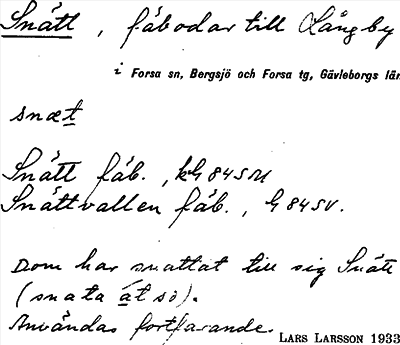 Snätt, fäbodar till Långby
i Forsa sn, Bergsjö och Forsa tg, Gävleborgs län
snæt
Snätt fäb., kG 84SM
Snättvallen fäb., G 84SV.
Dom har snattat till sig Snätt
(snata åt sö).
Användas fortfarande.
LARS LARSSON 1933